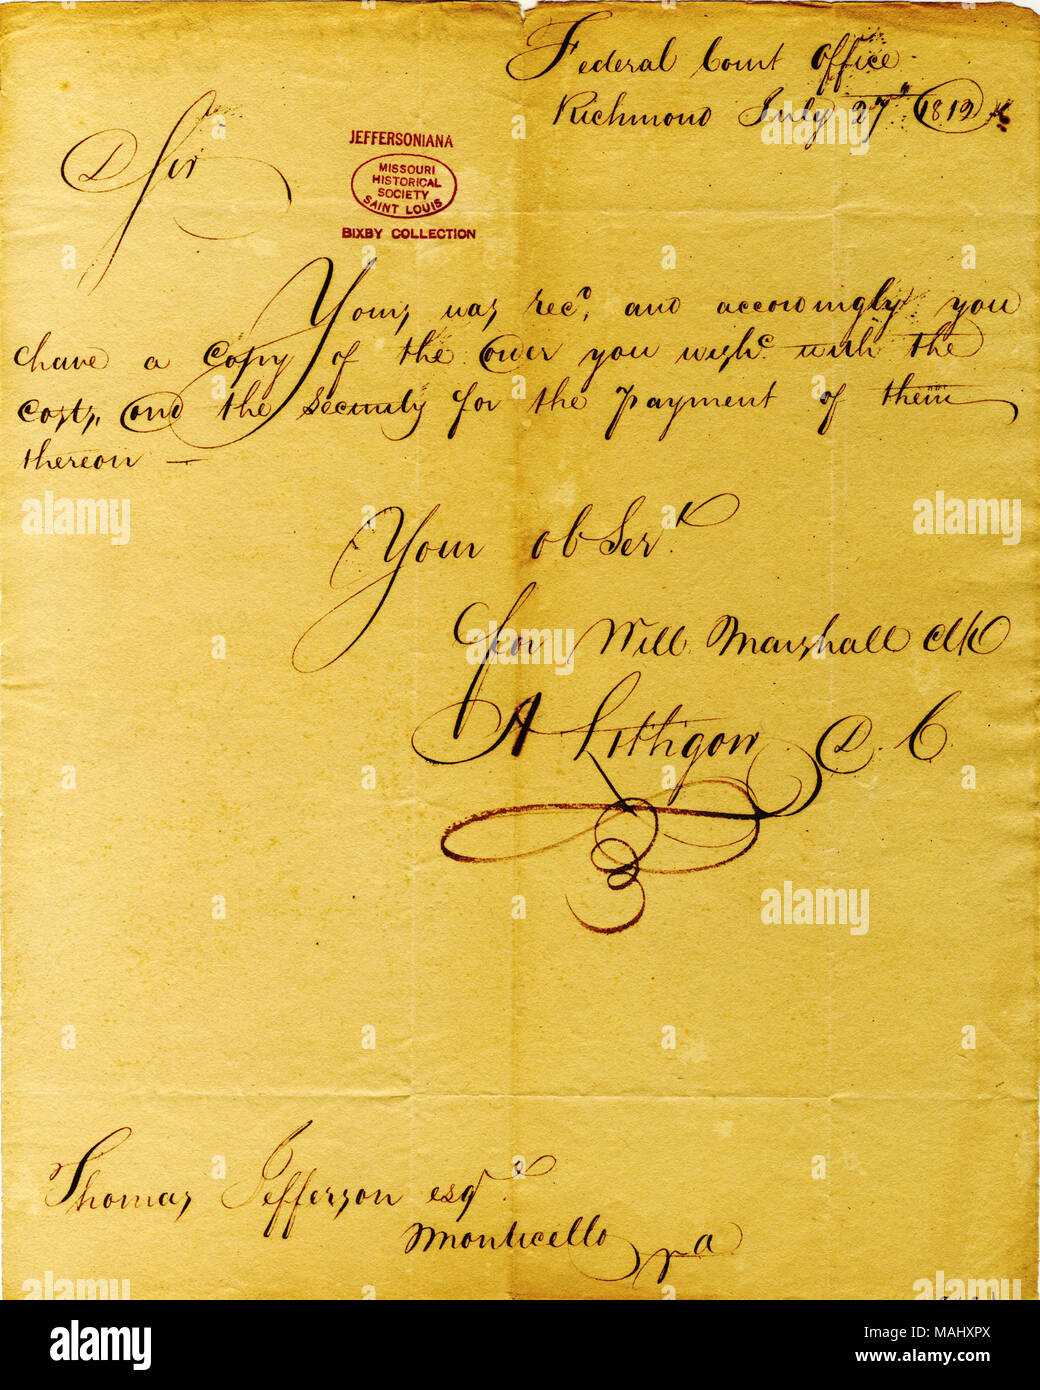 Federal Court Office
Richmond July 27" 1812
D Sir
JEFFERSONIANA
MISSOURI
HISTORICAL
SOCIETY
SAINT LOUIS
BIXBY COLLECTION
Yours was recd, and accordingly you
have a Copy of the order you wishd with the
Costs, and the Security for the payment of them
thereon —
Your ob Sert
for Will Marshall Clk
A Lithgow D. C.
Thomas Jefferson esqr
Monticello
va
a alamy
alamy
Image ID: MAHXPX
www.alamy.com